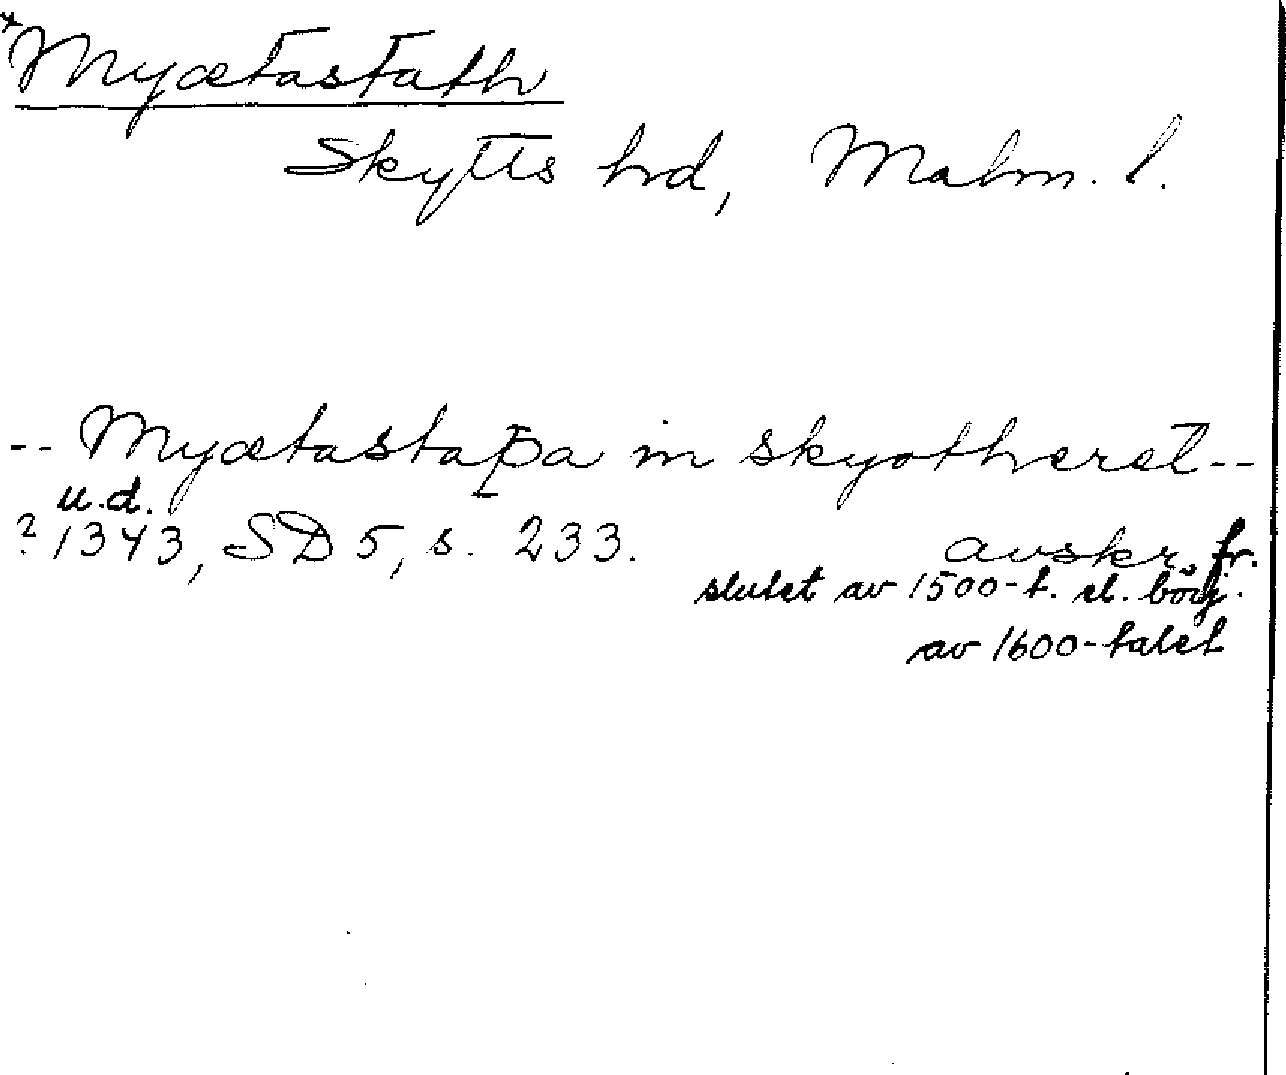 *Myætastath
Skytts hd, Malm. l.
-- Myætastaþa in skyotheret --
u.d.
? 1343, SD 5, s. 233. avskr. fr.
slutet av 1500-t. el. börj.
av 1600-talet